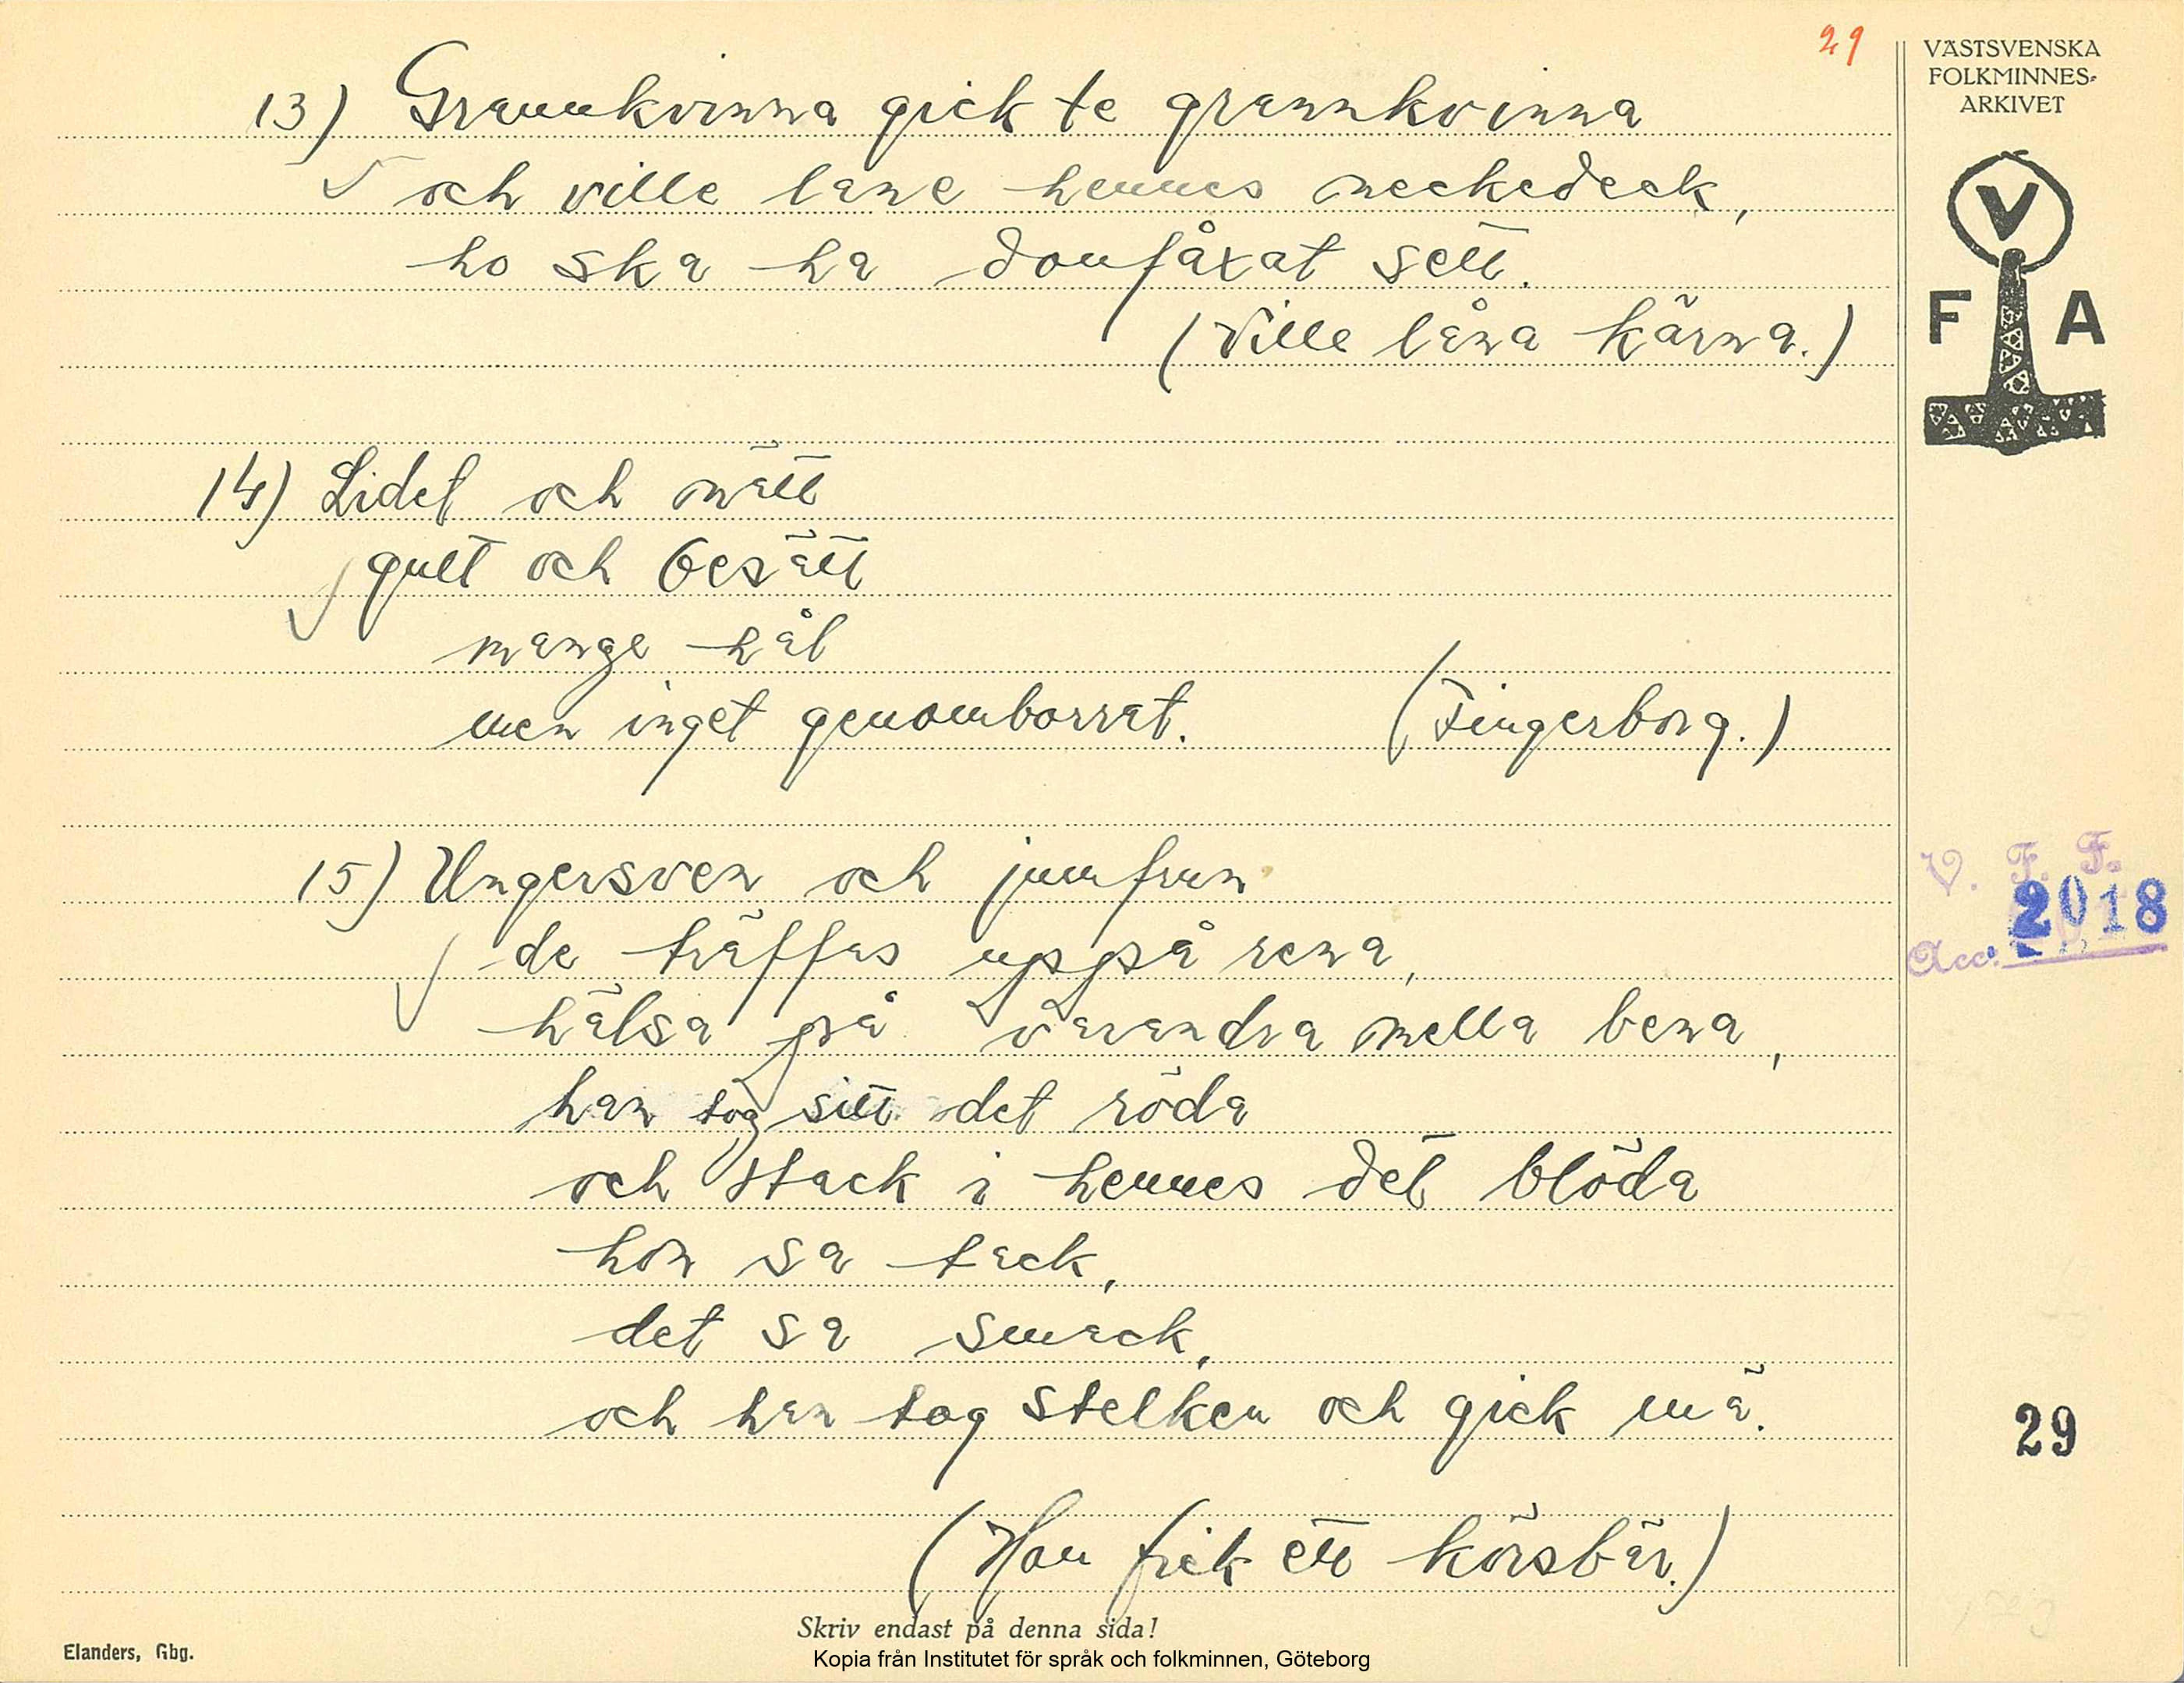 29
VÄSTSVENSKA
FOLKMINNES-
ARKIVET
V
F A
13) Grannkvinna gick te grannkvinna
och ville lane hennes neckedeck,
ho ska ha donfåxat sett.
(Ville låna kärna.)
14) Lidet och nätt
gult och besätt
mange hål
men inget genomborrat.
(Fingerborg.)
15) Ungersven och jumfrun
de träffas uppå rena,
hälsa på varandra mella bena,
han tog sitt det röda
och stack i hennes det blöda
hon sa tack,
det sa smack,
och han tog stelken och gick mä.
(Hon fick ett körsbär.)
V. F. F.
Acc. 2018
29
Skriv endast på denna sida!
Elanders, Gbg.
Kopia från Institutet för språk och folkminnen, Göteborg